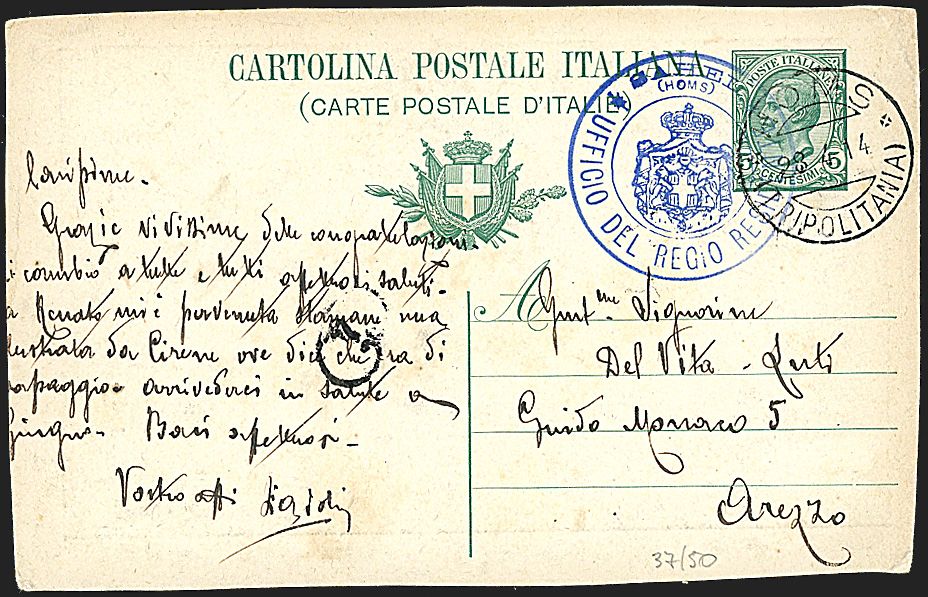 CARTOLINA POSTALE ITALIANA
(CARTE POSTALE D'ITALIE)
(HOMS)
UFFICIO DEL REGIO RES
POSTE ITALIANE
5 5
CENTESIMI
14
(TRIPOLITANIA)
Carissime.
Grazie vivissime delle congratulazioni.
cambio a tutte e tutti affettuosi saluti.
Renato mi è pervenuta stamane una
da Cirene ove dice che va di
passaggio. arrivederci in salute a
giugno. Baci affettuosi.
Vostro aff
Gent.me Signorine
Del Vita -
Guido Monaco 5
Arezzo
37/50